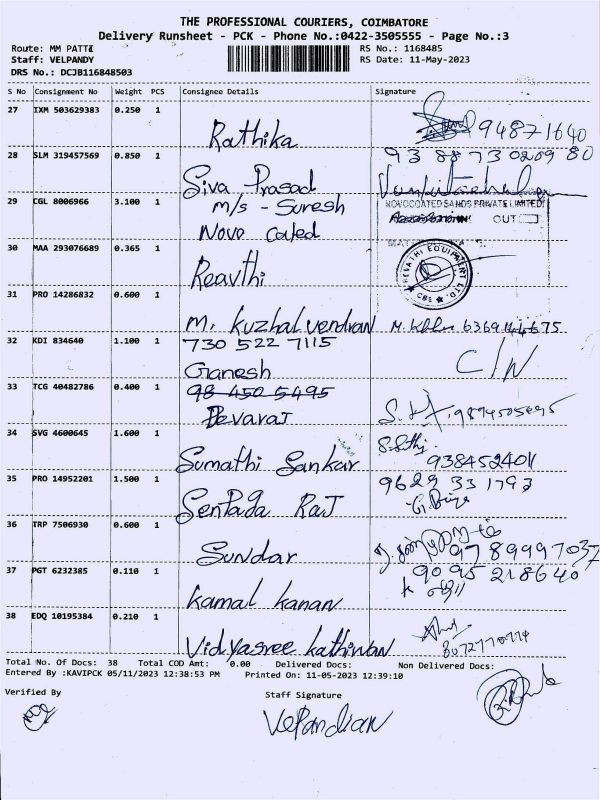 THE PROFESSIONAL COURIERS, COIMBATORE
Delivery Runsheet - PCK - Phone No.:0422-3505555 - Page No.:3
Route: MM PATTI
RS No.: 1168485
Staff: VELPANDY
RS Date: 11-May-2023
DRS No.: DCJB116848503
S No Consignment No Weight PCS Consignee Details Signature
27 IXM 503629383 0.250 1
Rathika 94871640
28 SLM 319457569 0.850 1
93 88 730209 80
Siva Prasad
29 CGL 8006966 3.100 1
m/s - Suresh
NOVOCOATED SANDS PRIVATE LIMITED
OUT
Novo Coted
30 MAA 293076689 0.365 1
REVATHI EQUIPMENT LTD.
CBE
Reavthi
31 PRO 14286832 0.600 1
m. kuzhal vendran
32 KDI 834640 1.100 1
730 522 7115
Ganesh
C/W
33 TCG 40482786 0.400 1
98 450 5495
Devaraj
34 SVG 4600645 1.600 1
Sumathi Sankar
9384524011
35 PRO 14952201 1.500 1
9629 33 1793
Sentada Raj
36 TRP 7506930 0.600 1
Sundar
9789997037
37 PGT 6232385 0.110 1
9095 218640
kamal kanan
38 EDQ 10195384 0.210 1
Vidyasree kathirvan
Total No. Of Docs: 38 Total COD Amt: 0.00 Delivered Docs: Non Delivered Docs:
Entered By :KAVIPCK 05/11/2023 12:38:53 PM Printed On: 11-05-2023 12:39:10
Verified By
Staff Signature
VelPandian